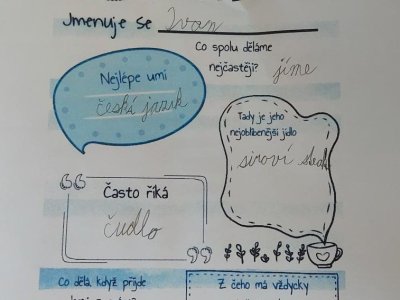 Jmenuje se Ivan
Co spolu děláme
nejčastěji? jíme
Nejlépe umí
českí jazik
Tady je jeho
nejoblíbenější jídlo
siroví
Často říká
čudlo
Co dělá, když přijde
Z čeho má vždycky